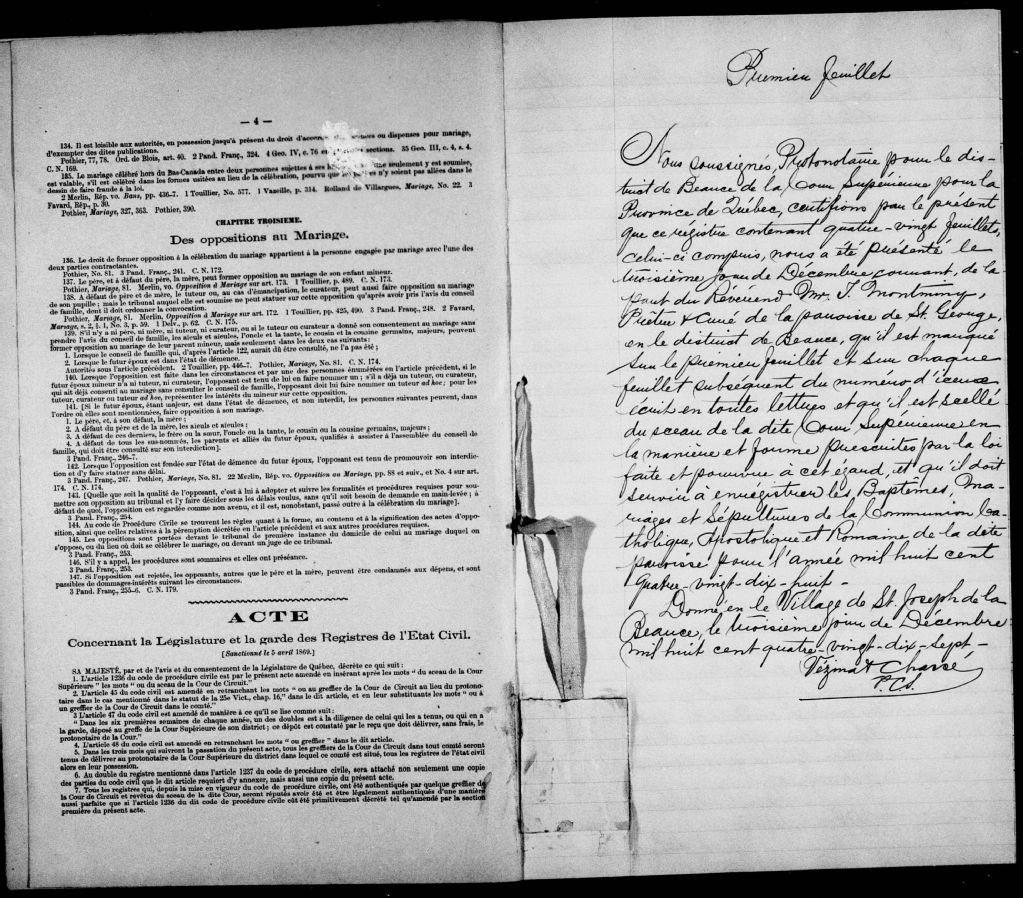 — 4 —
134. Il est loisible aux autorités, en possession jusqu'à présent du droit d'accorder des licences ou dispenses pour mariage,
d'exempter des dites publications.
Pothier, 77, 78. Ord. de Blois, art. 40. 2 Pand. Franç., 324. 4 Geo. IV, c. 76 sections. 35 Geo. III, c. 4, s. 4.
C. N. 169.
135. Le mariage célébré hors du Bas-Canada entre deux personnes sujettes à ses une seulement y est soumise,
est valable, s'il est célébré dans les formes usitées au lieu de la célébration, pourvu que n'y soient pas allées dans le
dessin de faire fraude à la loi.
2 Merlin, Rép. vo. Bans, pp. 436-7. 1 Touillier, No. 577. 1 Vazeille, p. 314. Rolland de Villargues, Mariage, No. 22. 3
Favard, Rép., p. 30.
Pothier, Mariage, 327, 363. Pothier, 390.
CHAPITRE TROISIEME.
Des oppositions au Mariage.
136. Le droit de former opposition à la célébration du mariage appartient à la personne engagée par mariage avec l'une des
deux parties contractantes.
Pothier, No. 81. 3 Pand. Franç., 241. C. N. 172.
137. Le père, et à défaut du père, la mère, peut former opposition au mariage de son enfant mineur.
Pothier, Mariage, 81. Merlin, vo. Opposition à Mariage sur art. 173. 1 Touillier, p. 489. C. N. 173.
138. A défaut de père et de mère, le tuteur ou, au cas d'émancipation, le curateur, peut aussi faire opposition au mariage
de son pupille; mais le tribunal auquel elle est soumise ne peut statuer sur cette opposition qu'après avoir pris l'avis du conseil
de famille, dont il doit ordonner la convocation.
Pothier, Mariage, 81. Merlin, Opposition à Mariage sur art. 172. 1 Touillier, pp. 425, 490. 3 Pand. Franç., 248. 2 Favard,
Mariage, s. 2, § 1, No. 3, p. 59. 1 Delv., p. 62. C. N. 175.
139. S'il n'y a ni père, ni mère, ni tuteur, ni curateur, ou si le tuteur ou curateur a donné son consentement au mariage sans
prendre l'avis du conseil de famille, les aïeuls et aïeules, l'oncle et la tante, le cousin et la cousine germains, majeurs, peuvent
former opposition au mariage de leur parent mineur, mais seulement dans les deux cas suivants:
1. Lorsque le conseil de famille qui, d'après l'article 122, aurait dû être consulté, ne l'a pas été;
2. Lorsque le futur époux est dans l'état de démence.
Autorités sous l'article précédent. 2 Touillier, pp. 446-7. Pothier, Mariage, No. 81. C. N. 174.
140. Lorsque l'opposition est faite dans les circonstances et par une des personnes énumérées en l'article précédent, si le
futur époux mineur n'a ni tuteur, ni curateur, l'opposant est tenu de lui en faire nommer un; s'il a déjà un tuteur, ou curateur,
qui ait déjà consenti au mariage sans consulter le conseil de famille, l'opposant doit lui faire nommer un tuteur ad hoc; pour les
tuteur, curateur ou tuteur ad hoc, représenter les intérêts du mineur sur cette opposition.
141. [Si le futur époux, étant majeur, est dans l'état de démence, et non interdit, les personnes suivantes peuvent, dans
l'ordre où elles sont mentionnées, faire opposition à son mariage.
1. Le père, et, à son défaut, la mère;
2. A défaut du père et de la mère, les aïeuls et aïeules;
3. A défaut de ces derniers, le frère ou la sœur, l'oncle ou la tante, le cousin ou la cousine germains, majeurs;
4. A défaut de tous les sus-nommés, les parents et alliés du futur époux, qualifiés à assister à l'assemblée du conseil de
famille, qui doit être consulté sur son interdiction].
3 Pand. Franç., 246-7.
142. Lorsque l'opposition est fondée sur l'état de démence du futur époux, l'opposant est tenu de promouvoir son interdic-
tion et d'y faire statuer sans délai.
3 Pand. Franç., 247. Pothier, Mariage, No. 81. 22 Merlin, Rép. vo. Opposition au Mariage, pp. 88 et suiv., et No. 4 sur art.
174. C. N. 174.
143. [Quelle que soit la qualité de l'opposant, c'est à lui à adopter et suivre les formalités et procédures requises pour sou-
mettre son opposition au tribunal et l'y faire décider sous les délais voulus, sans qu'il soit besoin de demande en main-levée; à
défaut de quoi, l'opposition est regardée comme non avenu, et il est, nonobstant, passé outre à la célébration du mariage].
3 Pand. Franç., 254.
144. Au code de Procédure Civile se trouvent les règles quant à la forme, au contenu et à la signification des actes d'oppo-
sition, ainsi que celles relatives à la péremption décrétée en l'article précédent et aux autres procédures requises.
145. Les oppositions sont portées devant le tribunal de première instance du domicile de celui au mariage duquel on
s'oppose, ou du lieu où doit se célébrer le mariage, ou devant un juge de ce tribunal.
3 Pand. Franç., 253.
146. S'il y a appel, les procédures sont sommaires et elles ont préséance.
3 Pand. Franç., 253.
147. Si l'opposition est rejetée, les opposants, autres que le père et la mère, peuvent être condamnés aux dépens, et sont
passibles de dommages-intérêts suivant les circonstances.
3 Pand. Franç., 255-6. C. N. 179.
ACTE
Concernant la Législature et la garde des Registres de l'Etat Civil.
[Sanctionné le 5 avril 1869.]
SA MAJESTÉ, par et de l'avis et du consentement de la Législature de Québec, décrète ce qui suit:
1. L'article 1236 du code de procédure civile est par le présent acte amendé en insérant après les mots " du sceau de la Cour
Supérieure " les mots " ou du sceau de la Cour de Circuit."
2. L'article 45 du code civil est amendé en retranchant les mots " ou au greffier de la Cour de Circuit au lieu du protono-
taire dans le cas mentionné dans le statut de la 25e Vict., chap. 16," dans le dit article, et en leur substituant les mots " ou à
un greffier de la Cour de Circuit dans le comté."
3 L'article 47 du code civil est amendé de manière à ce qu'il se lise comme suit:
" Dans les six premières semaines de chaque année, un des doubles est à la diligence de celui qui les a tenus, ou qui en a
la garde, déposé au greffe de la Cour Supérieure de son district; ce dépôt est constaté par le reçu que doit délivrer, sans frais, le
protonotaire de la Cour."
4. L'article 48 du code civil est amendé en retranchant les mots " ou greffier " dans le dit article.
5. Dans les trois mois qui suivront la passation du présent acte, tous les greffiers de la Cour de Circuit dans tout comté seront
tenus de délivrer au protonotaire de la Cour Supérieure du district dans lequel ce comté est situé, tous les registres de l'état civil
alors en leur possession.
6. Au double du registre mentionné dans l'article 1237 du code de procédure civile, sera attaché non seulement une copie
des parties du code civil que le dit article requiert d'y annexer, mais aussi une copie du présent acte.
7. Tous les registres qui, depuis la mise en vigueur du code de procédure civile, ont été authentiqués par quelque greffier de
la Cour de Circuit et revêtus du sceau de la dite Cour, seront réputés avoir été et être légalement authentiqués d'une manière
aussi parfaite que si l'article 1236 du dit code de procédure civile eût été primitivement décrété tel qu'amendé par la section
première du présent acte.
Premier feuillet
Nous soussignés, Protonotaire pour le dis-
trict de Beauce de la Cour Supérieure pour la
Province de Québec, certifions par le présent
que ce régistre contenant quatre-vingt feuillets,
celui-ci compris, nous a été présenté le
troisième jour de Décembre courant, de la
part du Révérend Mr. T. Montminy,
Prêtre & Curé de la paroisse de St. George,
en le district de Beauce, qu'il est marqué
sur le premier feuillet et sur chaque
feuillet subséquent du numéro d'iceux
écrit en toutes lettres et qu'il est scellé
du sceau de la dite Cour Supérieure en
la manière et forme prescrites par la loi
faite et pourvue à cet égard, et qu'il doit
servir à enrégistrer les Baptêmes, Ma-
riages et Sépultures de la Communion Ca-
tholique, Apostolique et Romaine de la dite
paroisse pour l'année mil huit cent
quatre-vingt-dix-huit-
Donné, en le Village de St. Joseph de la
Beauce, le troisième jour de Décembre
mil huit cent quatre-vingt-dix-sept-
Vézina & Chassé
P.C.S.